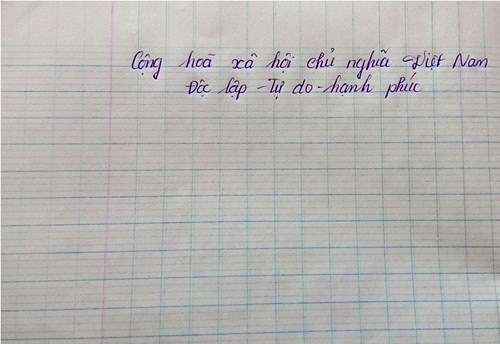 Cộng hoà xã hội chủ nghĩa Việt Nam
Độc lập - Tự do - hạnh phúc